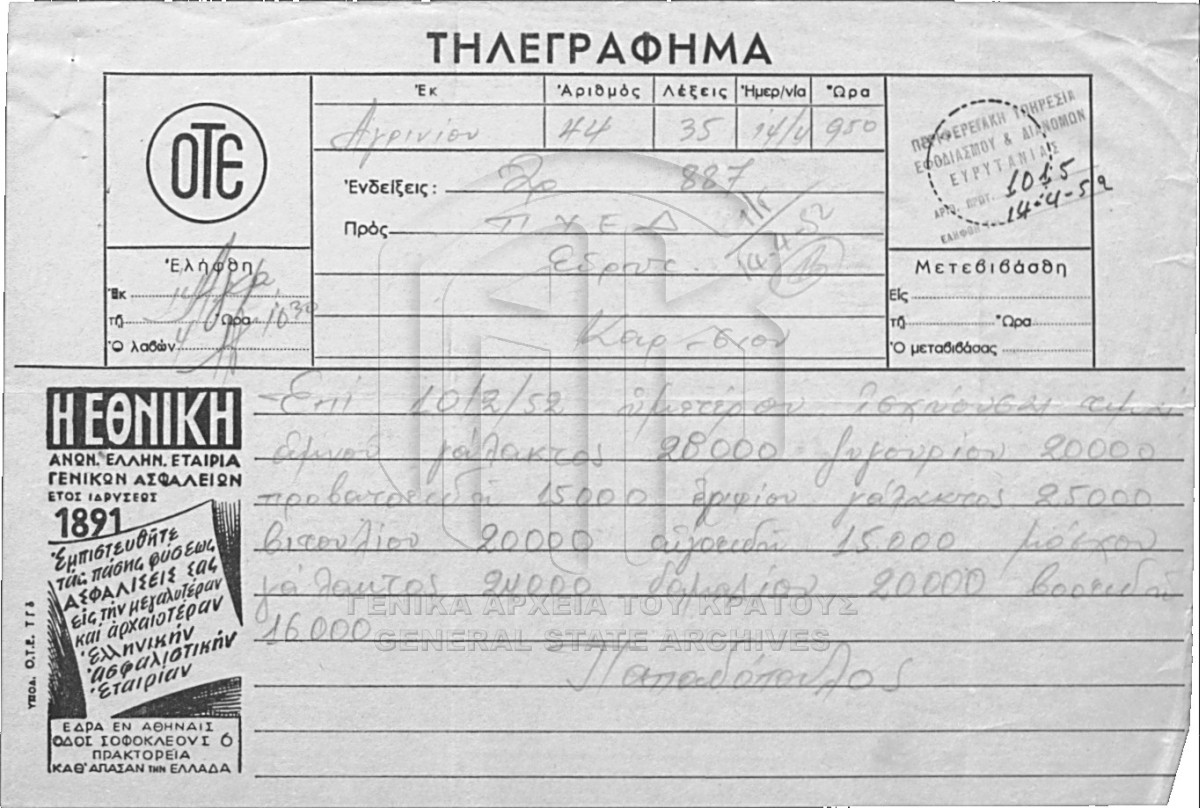 ΤΗΛΕΓΡΑΦΗΜΑ
ΟΤΕ
Ἐκ Ἀριθμὸς Λέξεις Ἡμερ/νία Ὥρα
Αγρινίου 44 35 14/4 950
Ἐνδείξεις: 887
Πρὸς Π Υ Ε Δ
14-4-52
Καρ-σιου
ΠΕΡΙΦΕΡΕΙΑΚΗ ΥΠΗΡΕΣΙΑ
ΕΦΟΔΙΑΣΜΟΥ & ΔΙΑΝΟΜΩΝ
ΕΥΡΥΤΑΝΙΑΣ
ΑΡΙΘ. ΠΡΩΤ. 1015
ΕΛΗΦΘΗ 14-4-52
Ἐλήφθη
Ἐκ
τῇ Ὥρα 1030
Ὁ λαβὼν
Μετεβιβάσθη
Εἰς
τῇ Ὥρα
Ὁ μεταβιβάσας
Η ΕΘΝΙΚΗ
ΑΝΩΝ. ΕΛΛΗΝ. ΕΤΑΙΡΙΑ
ΓΕΝΙΚΩΝ ΑΣΦΑΛΕΙΩΝ
ΕΤΟΣ ΙΔΡΥΣΕΩΣ
1891
Ἐμπιστευθῆτε
τὰς πάσης φύσεως
ΑΣΦΑΛΙΣΕΙΣ ΣΑΣ
εἰς τὴν μεγαλυτέραν
καὶ ἀρχαιοτέραν
Ἑλληνικὴν
ἀσφαλιστικὴν
Ἑταιρίαν
ΕΔΡΑ ΕΝ ΑΘΗΝΑΙΣ
ΟΔΟΣ ΣΟΦΟΚΛΕΟΥΣ 6
ΠΡΑΚΤΟΡΕΙΑ
ΚΑΘ' ΑΠΑΣΑΝ ΤΗΝ ΕΛΛΑΔΑ
ΥΠΟΔ. Ο.Τ.Ε. ΤΓ3
Επί 10/2/52 ημετέρου ισχύουσαι τιμαί
αμνού γάλακτος 28000 ζυγουρίου 20000
προβατοειδή 15000 εριφίου γάλακτος 25000
βιτουλίου 20000 αιγοειδή 15.000 μόσχου
γάλακτος 24000 δαμαλίου 20000 βοοειδή
16.000
Παπαδόπουλος
ΓΕΝΙΚΑ ΑΡΧΕΙΑ ΤΟΥ ΚΡΑΤΟΥΣ
GENERAL STATE ARCHIVES